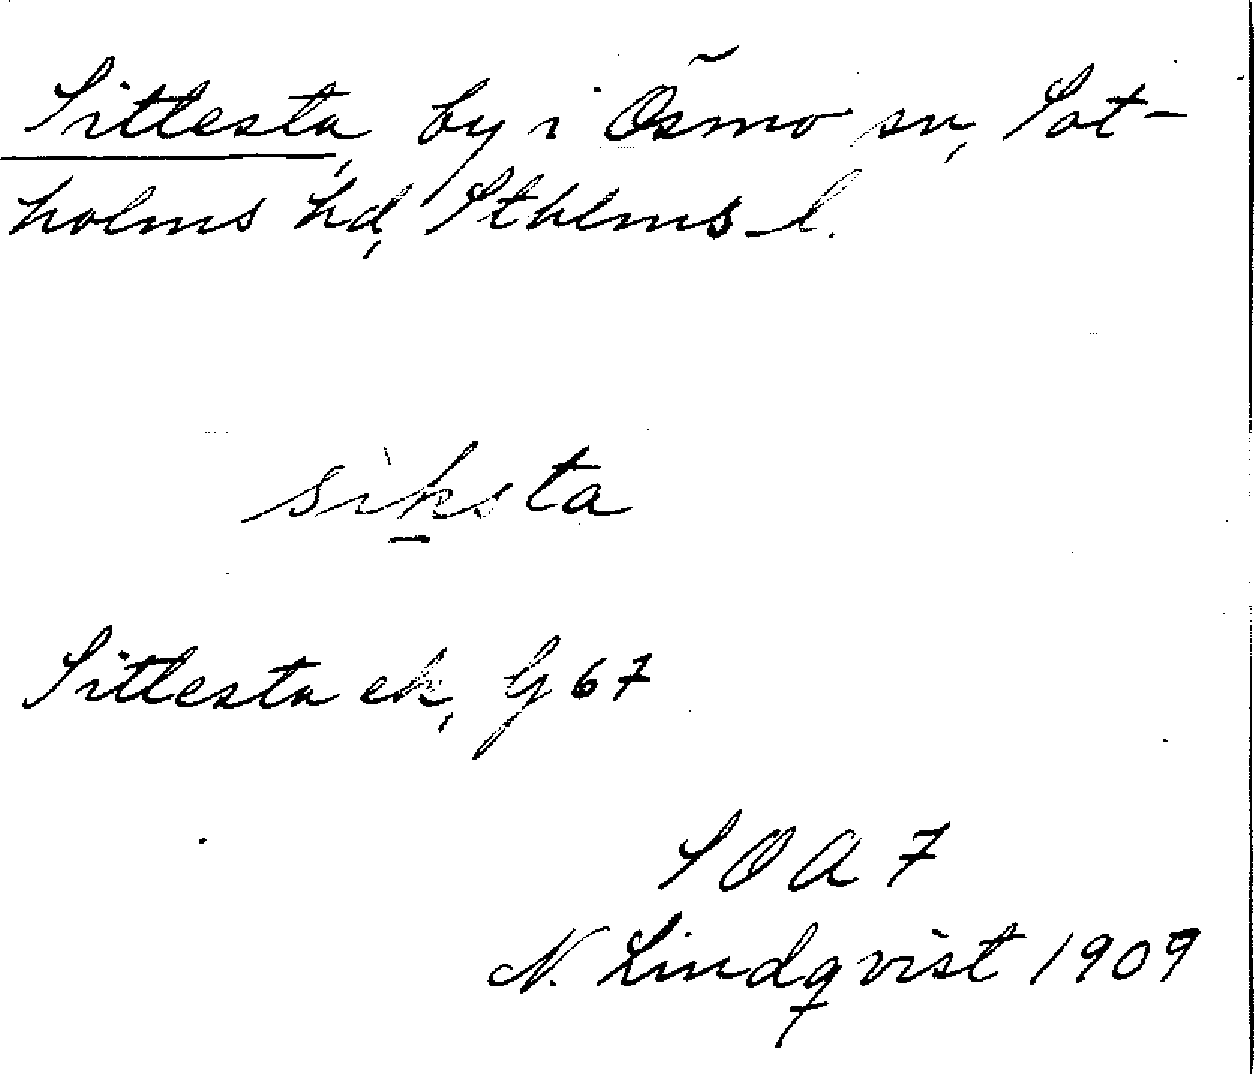 Sittesta, by i Ösmo sn, Sot-
holms hd, Sthlms l.
siksta
Sittesta ek, G 67
SOA 7
N. Lindqvist 1909